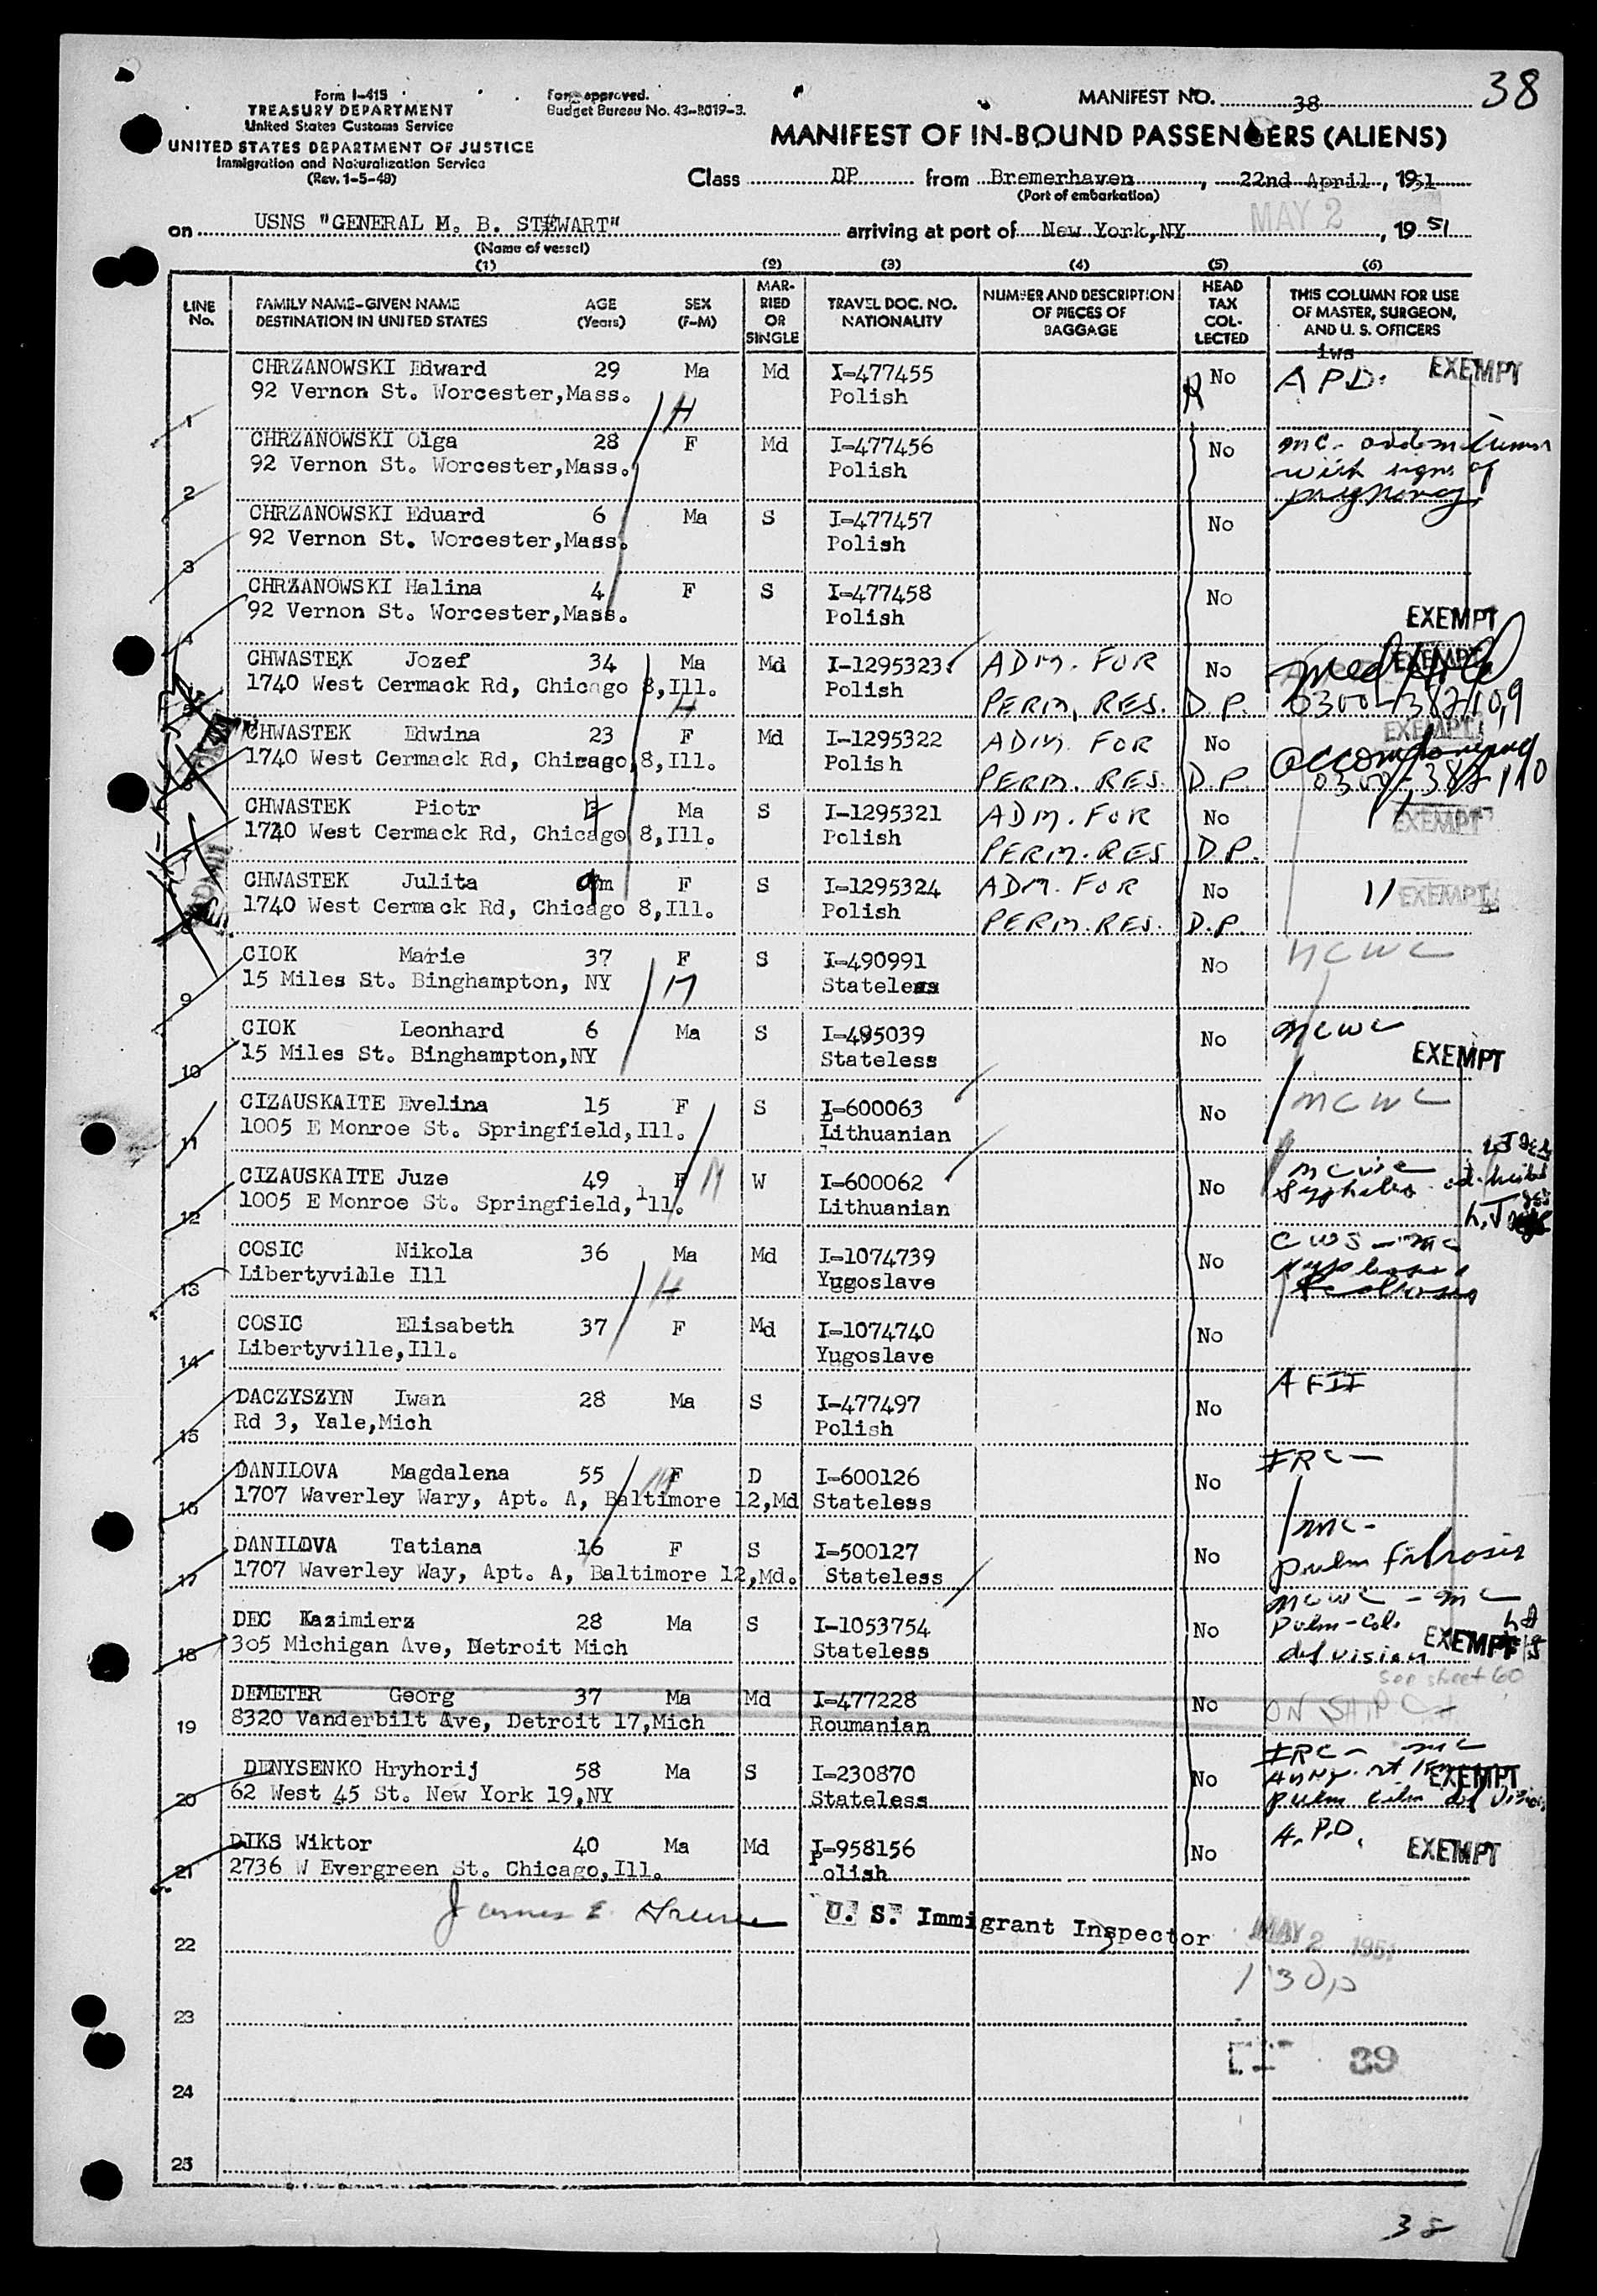 38
Form I-415
TREASURY DEPARTMENT
United States Customs Service
UNITED STATES DEPARTMENT OF JUSTICE
Immigration and Naturalization Service
(Rev. 1-5-48)
Form approved.
Budget Bureau No. 43-R019-3.
MANIFEST NO. 38
MANIFEST OF IN-BOUND PASSENGERS (ALIENS)
Class DP from Bremerhaven, 22nd April, 1951
(Port of embarkation)
MAY 2
on USNS "GENERAL M. B. STEWART" arriving at port of New York,NY, 1951
(Name of vessel)
(1) (2) (3) (4) (5) (6)
LINE No.
FAMILY NAME-GIVEN NAME
DESTINATION IN UNITED STATES
AGE (Years)
SEX (F-M)
MARRIED OR SINGLE
TRAVEL DOC. NO.
NATIONALITY
NUMBER AND DESCRIPTION OF PIECES OF BAGGAGE
HEAD TAX COLLECTED
THIS COLUMN FOR USE OF MASTER, SURGEON, AND U. S. OFFICERS
iws
1 CHRZANOWSKI Edward 29 Ma Md I-477455 No A P D. EXEMPT
92 Vernon St. Worcester,Mass. Polish
H
2 CHRZANOWSKI Olga 28 F Md I-477456 No mc-
92 Vernon St. Worcester,Mass. Polish with signs of
pregnancy
3 CHRZANOWSKI Eduard 6 Ma S I-477457 No
92 Vernon St. Worcester,Mass. Polish
4 CHRZANOWSKI Halina 4 F S I-477458 No
92 Vernon St. Worcester,Mass. Polish EXEMPT
5 CHWASTEK Jozef 34 Ma Md I-1295323 ADM. FOR No EXEMPT
1740 West Cermack Rd, Chicago 8,Ill. Polish PERM. RES. D.P. 0300-387109
H
6 CHWASTEK Edwina 23 F Md I-1295322 ADM. FOR No EXEMPT
accompanying
1740 West Cermack Rd, Chicago,8,Ill. Polish PERM. RES. D.P. 0300-387110
7 CHWASTEK Piotr Ma S I-1295321 ADM. FOR No EXEMPT
1740 West Cermack Rd, Chicago 8,Ill. Polish PERM. RES D.P.
8 CHWASTEK Julita 9m F S I-1295324 ADM. FOR No 11 EXEMPT
1740 West Cermack Rd, Chicago 8,Ill. Polish PERM. RES. D.P.
9 CIOK Marie 37 F S I-490991 No NCWC
15 Miles St. Binghampton, NY Stateless
10 CIOK Leonhard 6 Ma S I-495039 No NCWC
15 Miles St. Binghampton,NY Stateless EXEMPT
11 CIZAUSKAITE Evelina 15 F S I-600063 No NCWC
1005 E Monroe St. Springfield,Ill. Lithuanian
12 CIZAUSKAITE Juze 49 F W I-600062 No
1005 E Monroe St. Springfield,Ill. Lithuanian Syphilis
13 COSIC Nikola 36 Ma Md I-1074739 No CWS - mc
Libertyville Ill Yugoslave
H
14 COSIC Elisabeth 37 F Md I-1074740 No
Libertyville,Ill. Yugoslave
15 DACZYSZYN Iwan 28 Ma S I-477497 No AFII
Rd 3, Yale,Mich Polish
16 DANILOVA Magdalena 55 F D I-600126 No IRC -
1707 Waverley Wary, Apt. A, Baltimore 12,Md Stateless
17 DANILOVA Tatiana 16 F S I-500127 No mc-
1707 Waverley Way, Apt. A, Baltimore 12,Md. Stateless pulm fibrosis
18 DEC Kazimierz 28 Ma S I-1053754 No NCWC - mc
305 Michigan Ave, Detroit Mich Stateless def vision EXEMPT
see sheet 60
19 DEMETER Georg 37 Ma Md I-477228 No ON SHIP
8320 Vanderbilt Ave, Detroit 17,Mich Roumanian
20 DENYSENKO Hryhorij 58 Ma S I-230870 No IRC - mc
62 West 45 St. New York 19,NY Stateless EXEMPT
21 DIKS Wiktor 40 Ma Md I-958156 No A.P.D.
2736 W Evergreen St. Chicago,Ill. Polish EXEMPT
James E. U. S. Immigrant Inspector MAY 2 1951
22
1 30p
23
39
24
25
38